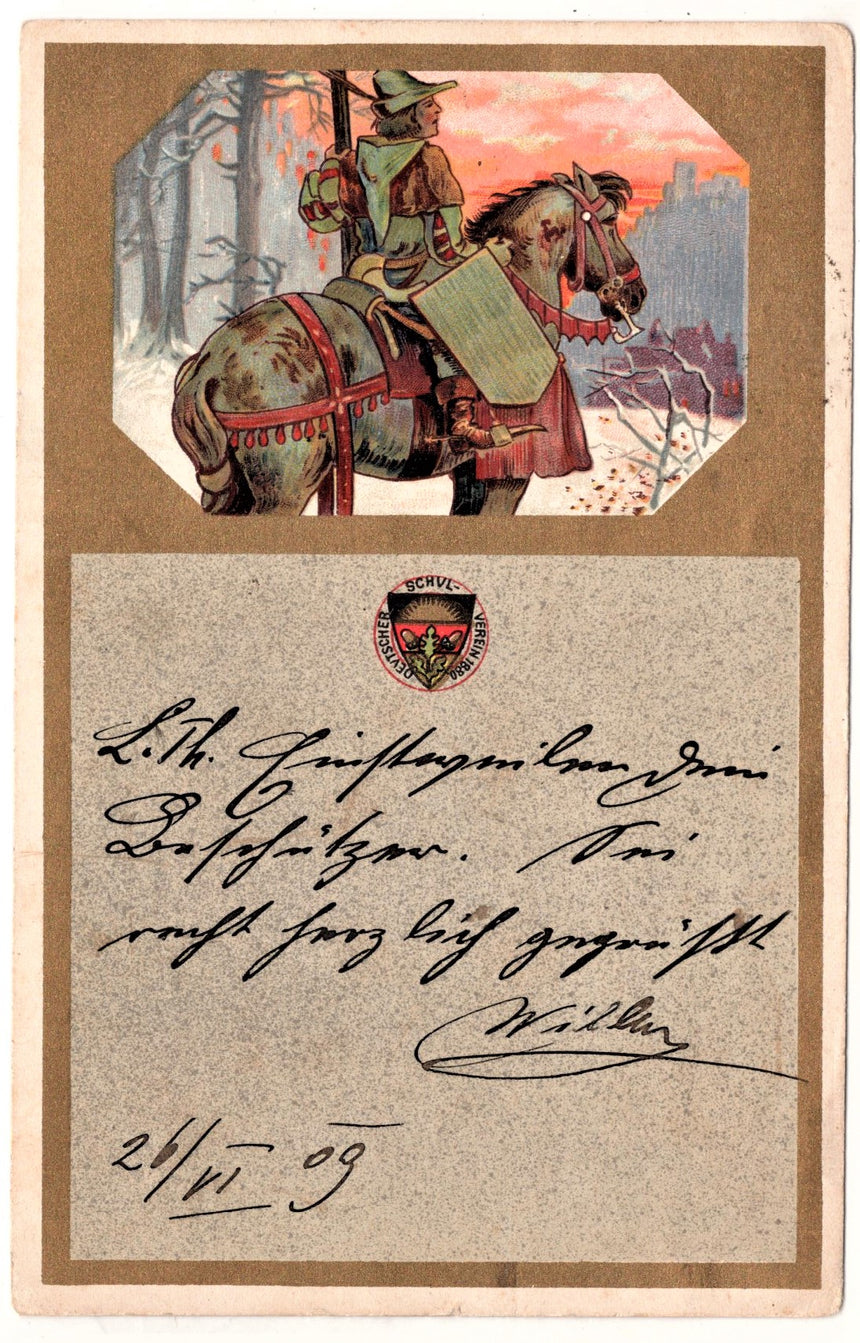 DEVTSCHER SCHVL-VEREIN 1880
L. Th. Einstweilen dein
Beschützer. Sei
recht herzlich gegrüßt
26/VI 09